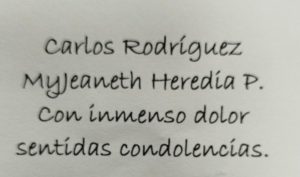 Carlos Rodríguez
MyJeaneth Heredia P.
Con inmenso dolor
sentidas condolencias.